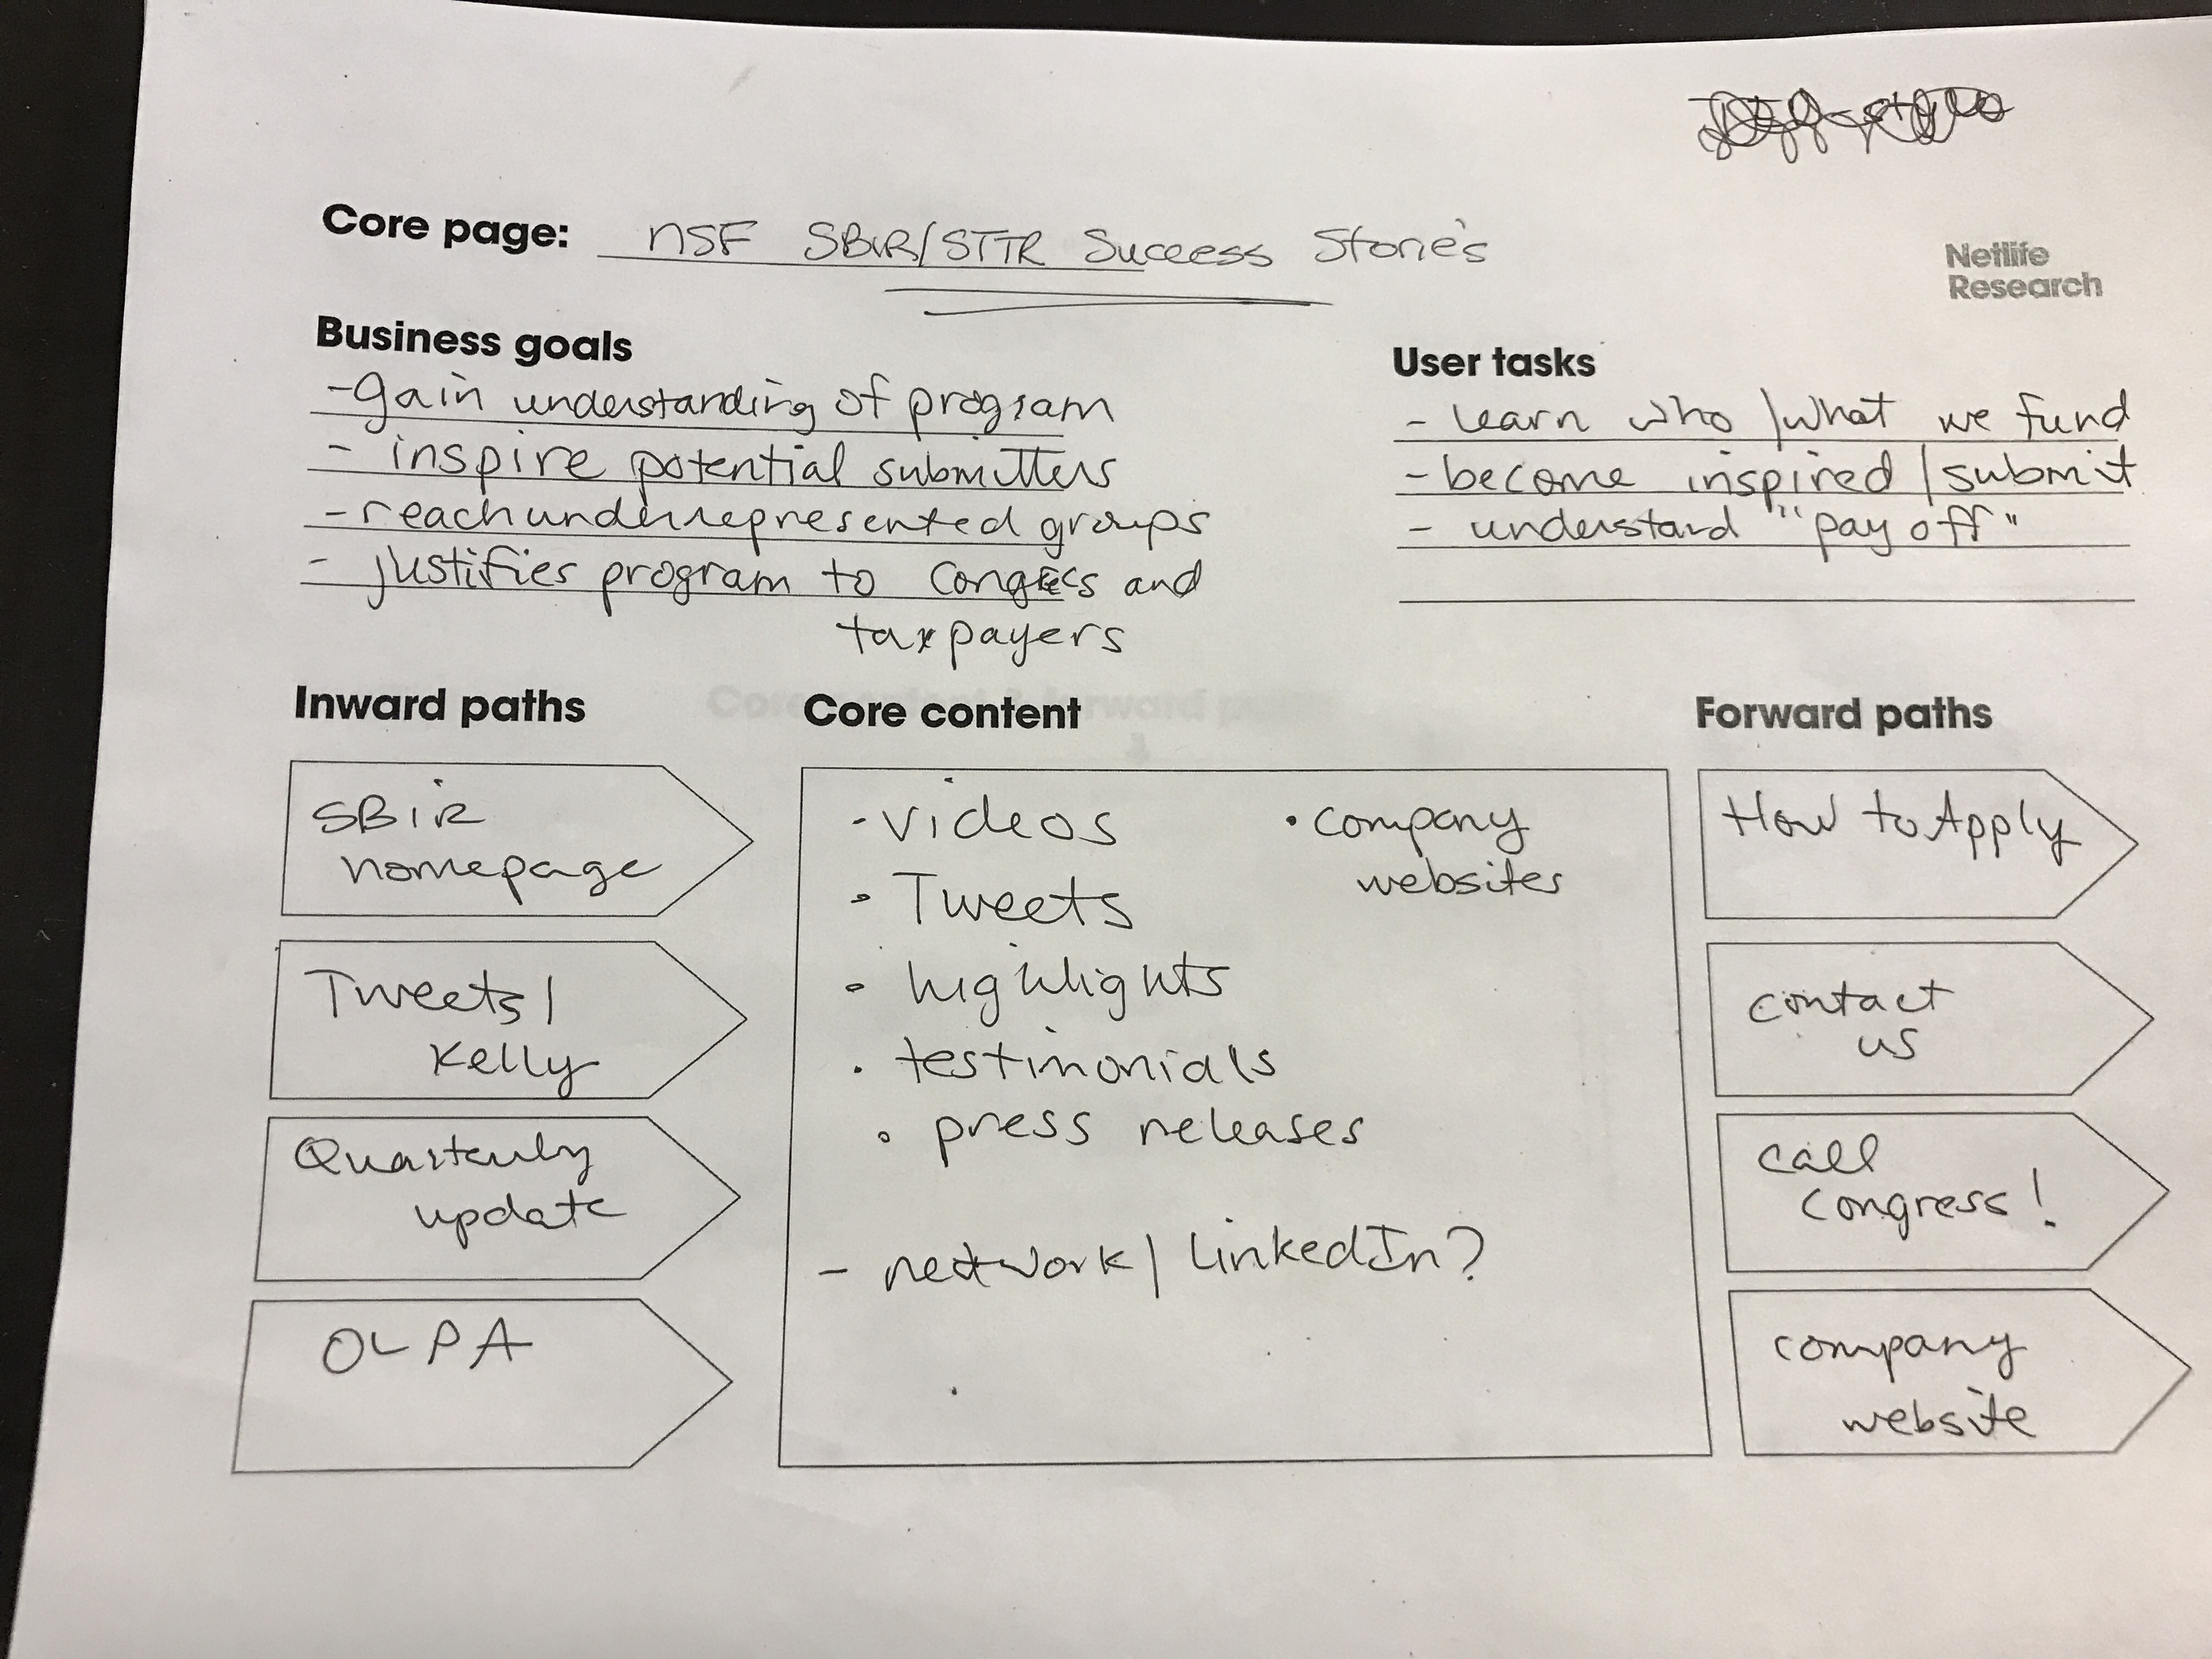 Core page: NSF SBIR/STTR Success Stories
Netlife
Research
Business goals
- gain understanding of program
- inspire potential submitters
- reach underrepresented groups
- justifies program to Congress and
taxpayers
User tasks
- learn who/what we fund
- become inspired/submit
- understand "pay off"
Inward paths
SBIR
homepage
Tweets/
Kelly
Quarterly
update
OLPA
Core content
· videos
· Tweets
· highlights
· testimonials
· press releases
· company
websites
- network/LinkedIn?
Forward paths
How to Apply
contact
us
call
congress!
company
website